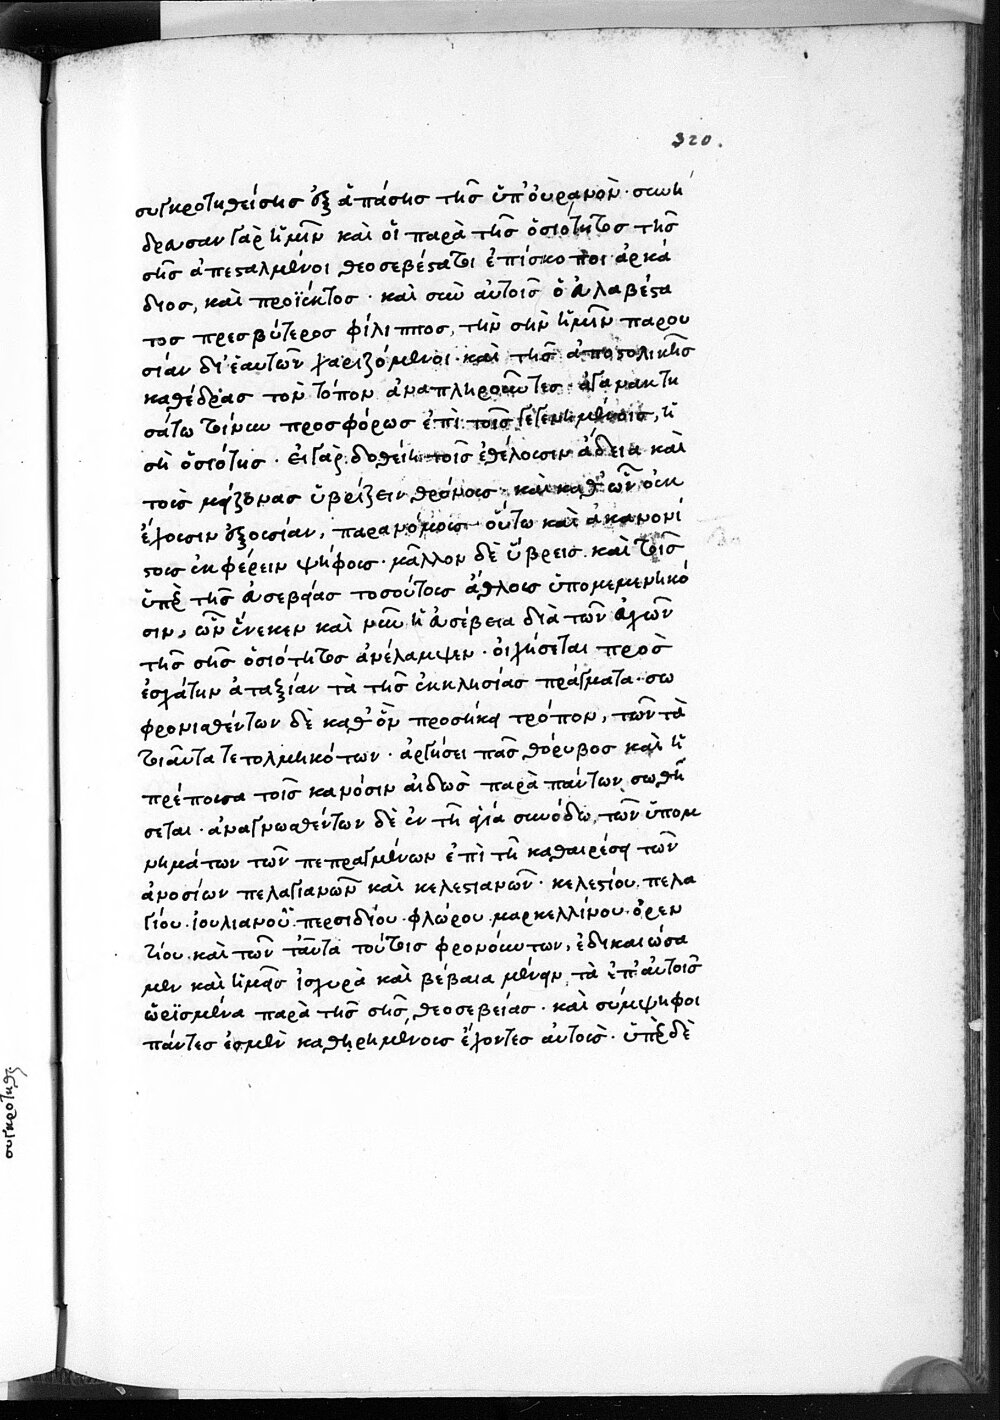 320.
συγκροτηθείσης ἐξ ἁπάσης τῆς ὑπ' οὐρανὸν· συνή
δρευσαν γὰρ ἡμῖν καὶ οἱ παρὰ τῆς ὁσιότητος τῆς
σῆς ἀπεσταλμένοι θεοσεβέστατοι ἐπίσκοποι ἀρκά
διος, καὶ προϊέκτος· καὶ σὺν αὐτοῖς ὁ εὐλαβέστα
τος πρεσβύτερος φίλιππος, τὴν σὴν ἡμῖν παρου
σίαν δι' ἑαυτῶν χαριζόμενοι· καὶ τῆς ἀποστολικῆς
καθέδρας τὸν τόπον ἀναπληροῦντες· ἀγανακτη
σάτω τοίνυν προσφόρως ἐπὶ τοῖς γεγενημένοις, ἡ
σὴ ὁσιότης· εἰ γὰρ δοθείη τοῖς ἐθέλουσιν ἄδεια καὶ
τοὺς μείζονας ὑβρίζειν θρόνους· καὶ καθ' ὧν οὐκ
ἔχουσιν ἐξουσίαν, παρανόμους οὕτω καὶ ἀκανονί
στους ἐκφέρειν ψήφους· μᾶλλον δὲ ὕβρεις καὶ τοῖς
ὑπὲρ τῆς εὐσεβείας τοσούτους ἄθλους ὑπομεμενηκό
σιν, ὧν ἕνεκεν καὶ νῦν ἡ εὐσέβεια διὰ τῶν εὐχῶν
τῆς σῆς ὁσιότητος ἀνέλαμψεν· οἰχήσεται πρὸς
ἐσχάτην ἀταξίαν τὰ τῆς ἐκκλησίας πράγματα· σω
φρονισθέντων δὲ καθ' ὃν προσήκει τρόπον, τῶν τὰ
τοιαῦτα τετολμηκότων· ἀργήσει πᾶς θόρυβος καὶ ἡ
πρέπουσα τοῖς κανόσιν αἰδὼς παρὰ πάντων σωθή
σεται· ἀναγνωσθέντων δὲ ἐν τῇ ἁγίᾳ συνόδω τῶν ὑπομ
νημάτων τῶν πεπραγμένων ἐπὶ τῇ καθαιρέσει τῶν
ἀνοσίων πελαγιανῶν καὶ κελεστιανῶν· κελεστίου πελα
γίου· ἰουλιανοῦ· περσιδίου· φλώρου· μαρκελλίνου· ὀρεν
τίου καὶ τῶν ταῦτα τούτοις φρονούντων, ἐδικαιώσα
μεν καὶ ἡμεῖς ἰσχυρὰ καὶ βέβαια μένειν τὰ ἐπ' αὐτοῖς
ὡρϊσμένα παρὰ τῆς σῆς θεοσεβείας· καὶ σύμψηφοι
πάντες ἐσμὲν καθηρημένους ἔχοντες αὐτοὺς· ὑπὲρ δὲ
συγκροτηθει